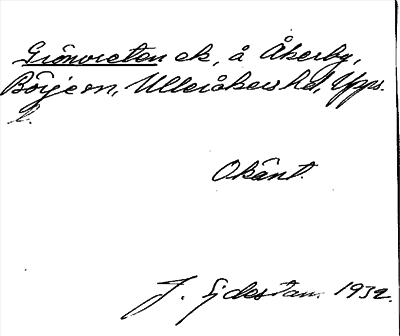 Grönvreten ek, å Åkerby,
Börje sn, Ulleråkers hd, Upps.
l.
Okänt.
J. Sjdestam. 1932.